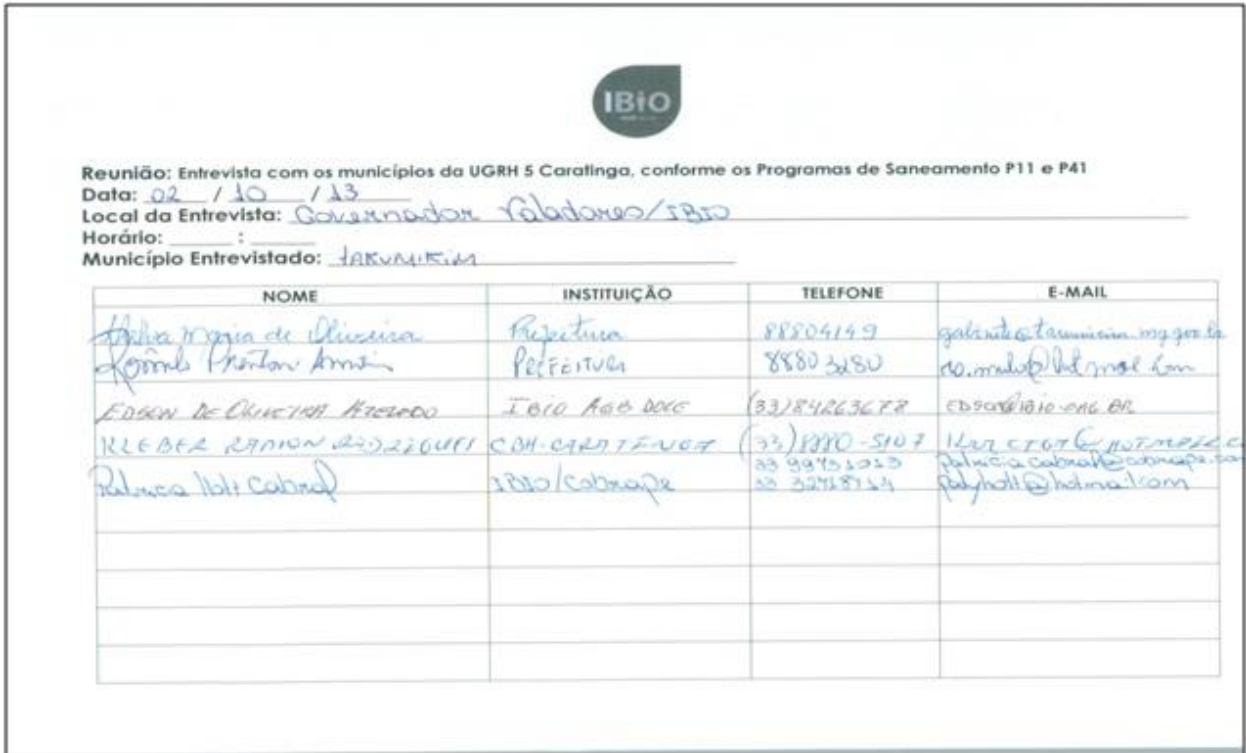 IBiO
Reunião: Entrevista com os municípios da UGRH 5 Caratinga, conforme os Programas de Saneamento P11 e P41
Data: 02 / 10 / 13
Local da Entrevista: Governador Valadares/IBIO
Horário: ______ : ______
Município Entrevistado: TARUMIRIM
NOME INSTITUIÇÃO TELEFONE E-MAIL
Maria de Oliveira Prefeitura 88804149
PREFEITURA 8880 3280
EDSON DE OLIVEIRA AZEVEDO IBIO AGB DOCE (33)84263678 EDSON@IBIO.ORG.BR
KLEBER RAMON RODRIGUES CBH-CARATINGA (33)8880-5107
Patricia Holt Cabral IBIO/Cobrape 33 99751013 patricia.cabral@cobrape.com
33 32718714 patyholt@hotmail.com